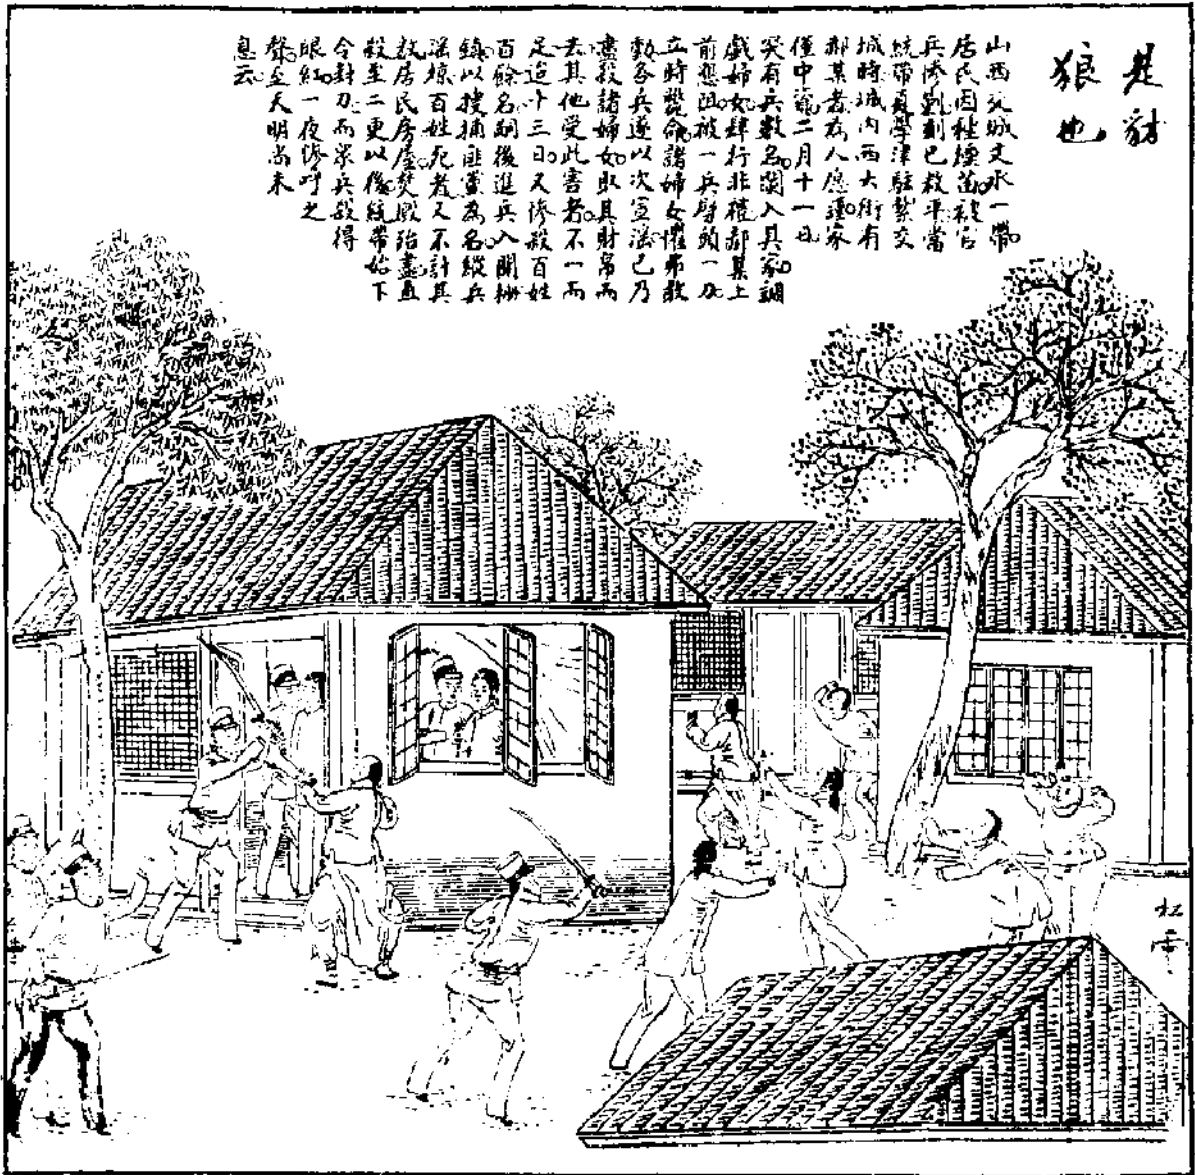 是豺
狼也
山西交城文水一帶
居民因種煙苗被官
兵慘剿刻已救平當
統帶夏學津駐紮交
城時城內西大街有
郝某者為人應謹家
僅中資二月十一日
突有兵數名闖入其家調
戲婦女肆行非禮郝某上
前怒阻被一兵劈頭一刀
立時斃命諸婦女懼弗敢
動各兵遂以次宣淫已乃
盡殺諸婦女取其財帛而
去其他受此害者不一而
足迨十三日又慘殺百姓
百餘名嗣後進兵入開柵
鎮以搜捕匪黨為名縱兵
淫掠百姓死者又不計其
數居民房屋焚燬殆盡直
殺至二更以後統帶始下
令封刀而眾兵殺得
眼紅一夜慘呼之
聲至天明尚未
息云
松雲